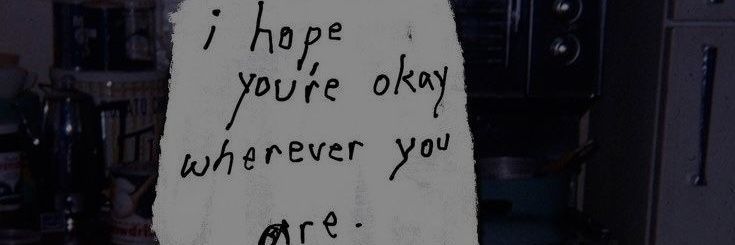 i hope
you're okay
wherever you
are.